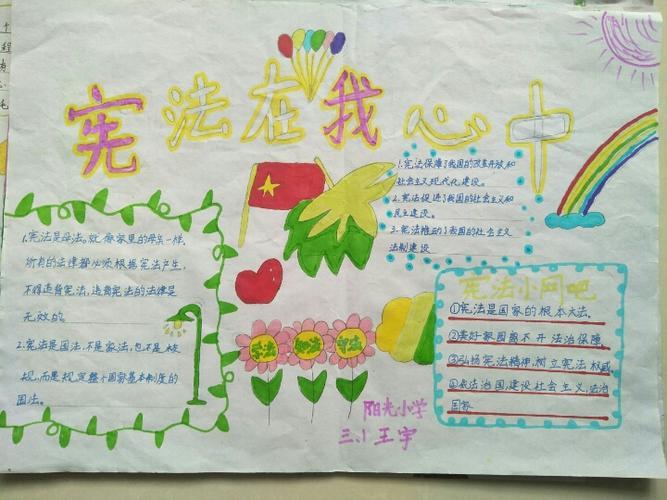 宪法在我心中
1.宪法保障了我国的改革开放和
社会主义现代化建设。
2.宪法促进了我国的社会主义和
民主建设。
3.宪法推动了我国的社会主义
法制建设
1.宪法是母法,就像家里的母亲一样,
所有的法律都必须根据宪法产生,
不得违背宪法,违背宪法的法律是
无效的
2.宪法是国法,不是家法,也不是校
规,而是规定整个国家基本制度的
国法。
宪法小网吧
①宪法是国家的根本大法。
②美好家园离不开法治保障
③弘扬宪法精神,树立宪法权威
④依法治国,建设社会主义,法治
国家
学法
守法
阳光小学
三.1 王宇